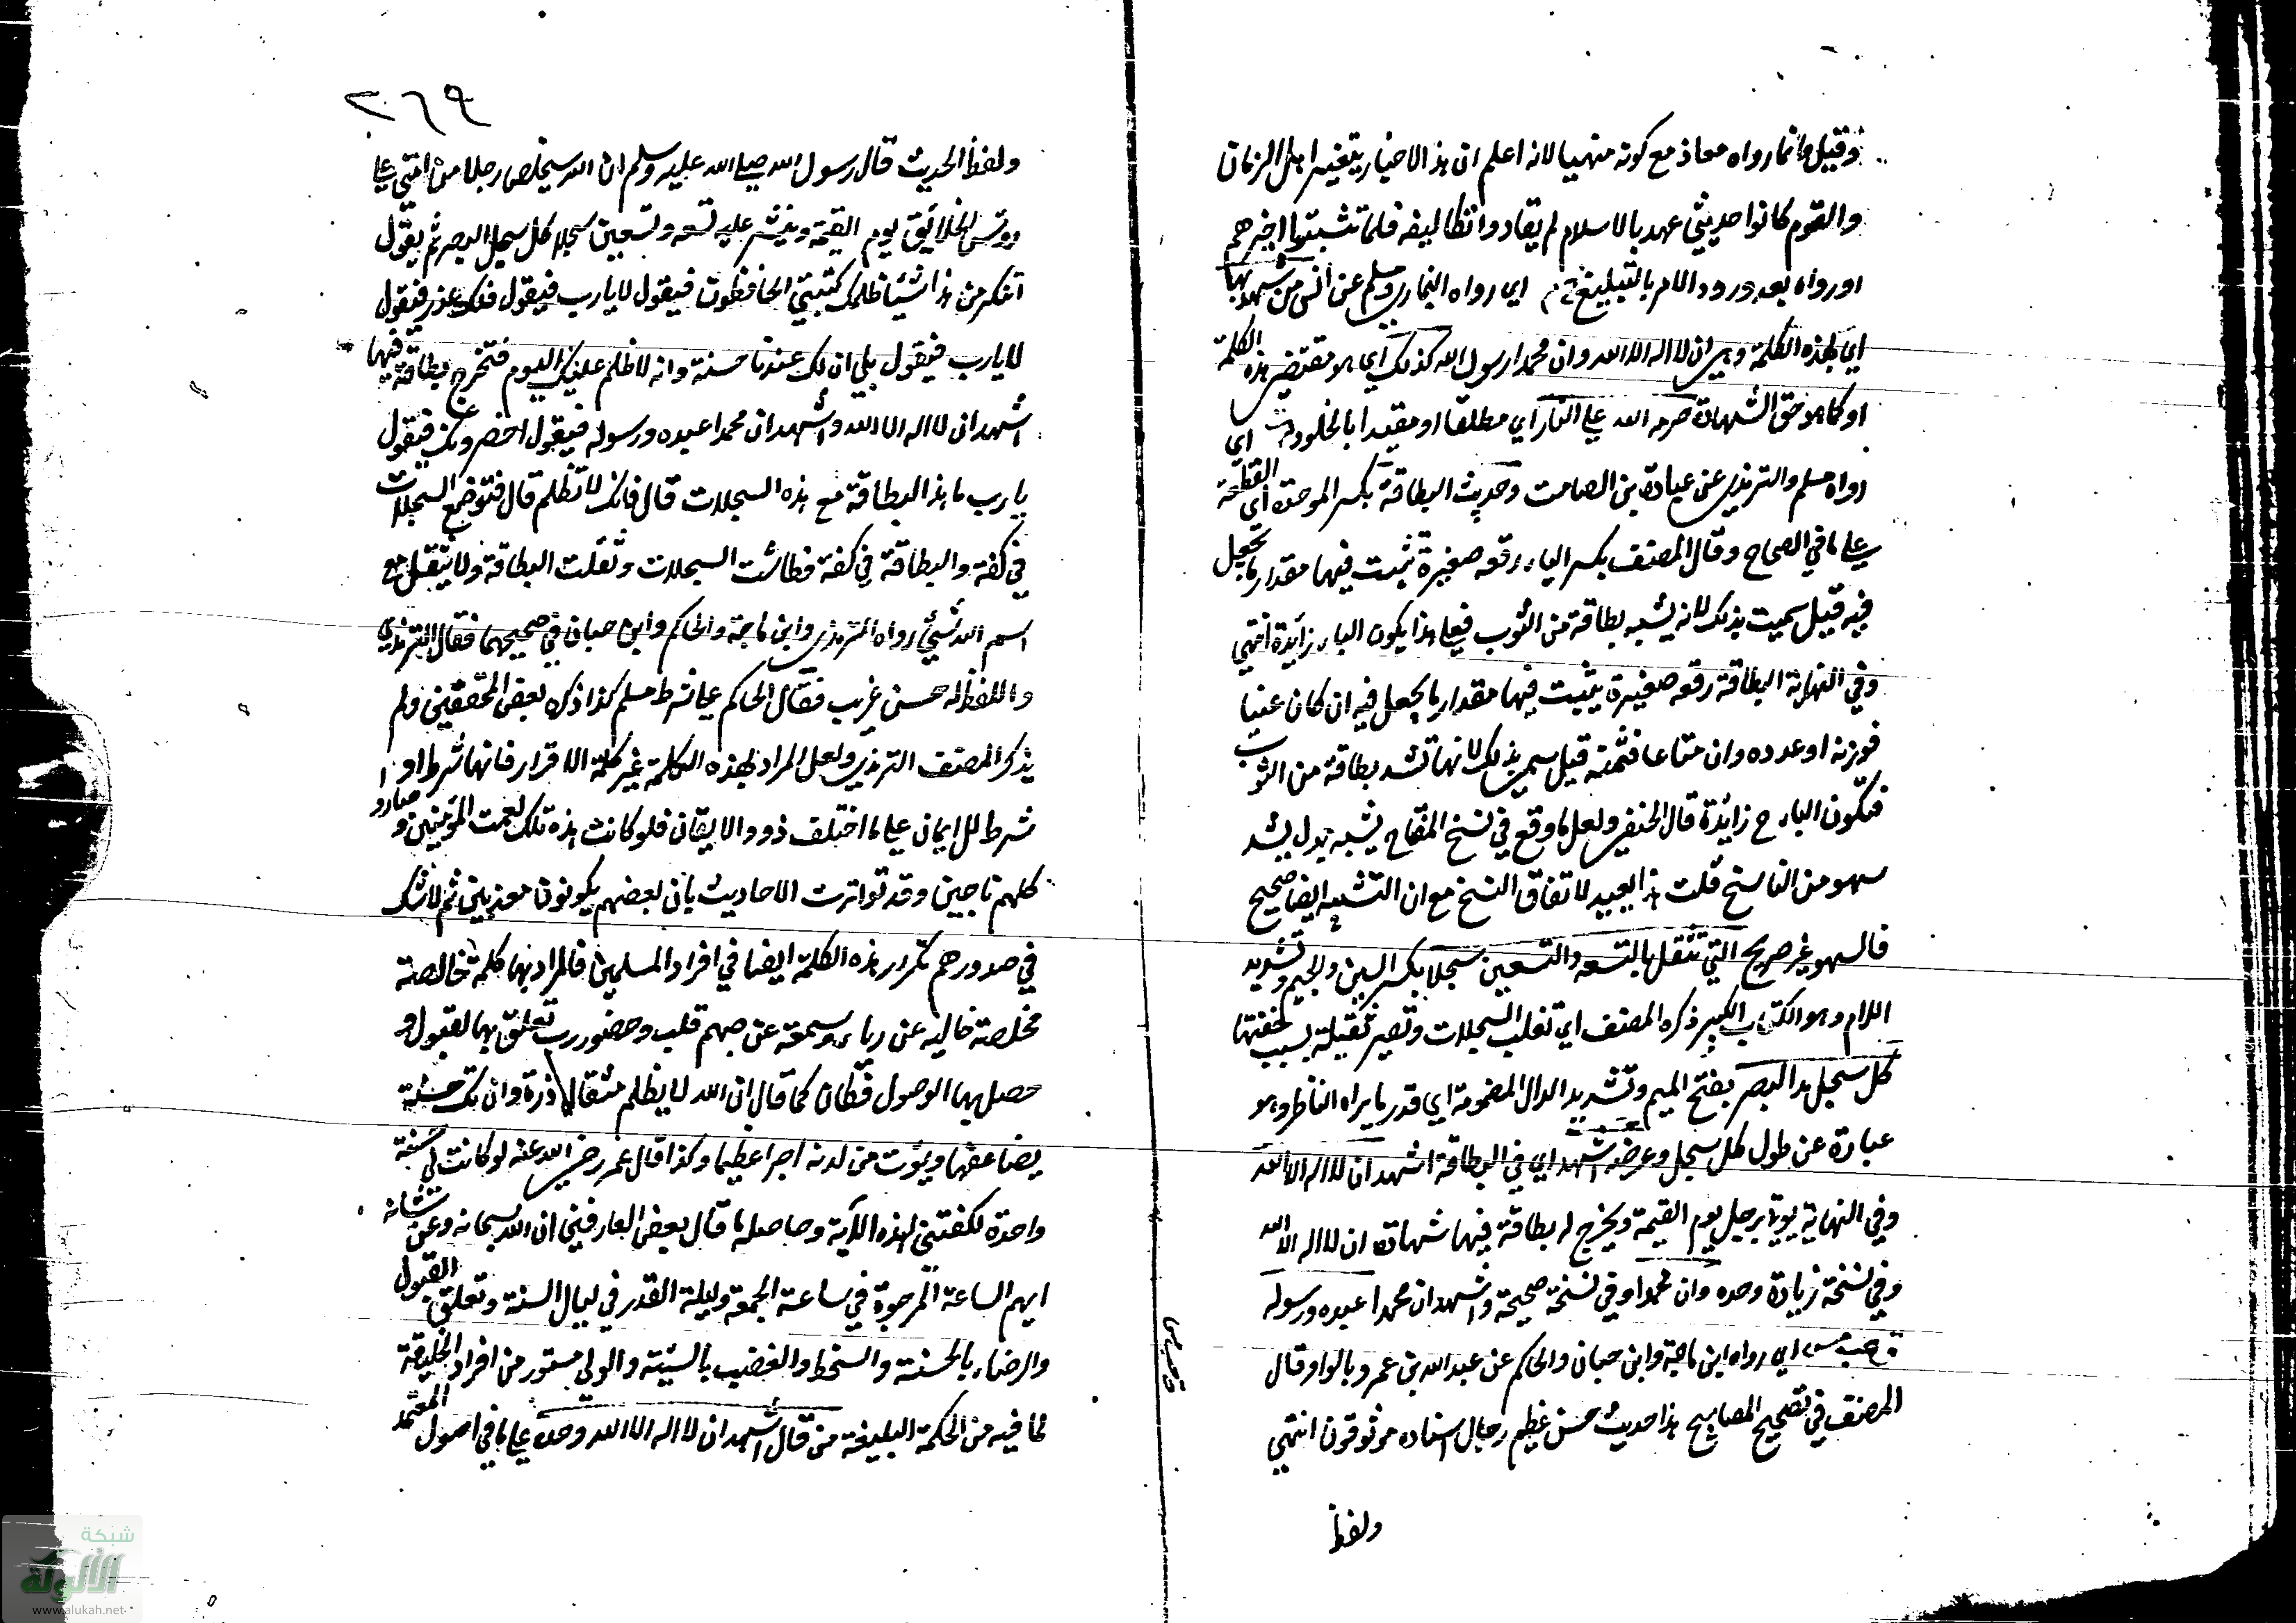 وقيل انما رواه معاذ مع كونه منهيا لانه اعلم ان هذا الاخبار يتغير اهل الزمان
والقوم كانوا حديثي عهد بالاسلام لم يقادوا تكاليفه فلما تثبتوا اخبرهم
او رواه بعد ورود الامر بالتبليغ خ م اي رواه البخاري ومسلم عن انس من شهد بها
اي لهذه الكلمة وهي ان لا اله الا الله وان محمدا رسول الله كذلك اي مقتضى هذه الكلمة
او كما هو حق الشهادة حرمه الله على النار اي مطلقا او مقيدا بالخلود م ت اي
رواه مسلم والترمذي عن عبادة بن الصامت وحديث البطاقة بكسر الموحدة اي القطعة
على ما في الصحاح وقال المصنف بكسر الباء رقعه صغيرة تثبت فيها مقدار ما تجعل
فيه قيل سميت بذلك لانه يشبه بطاقة من الثوب فعلى هذا يكون الباء زايدة انتهى
وفي النهاية البطاقة رقعه صغيرة يثبت فيها مقدار ما يجعل فيه ان كان عينا
فوزنه او عدده وان متاعا فثمنه قيل سمي بذلك لانها تشد بطاقة من الثوب
فتكون الباء ح زائدة قال الحنفي ولعل ما وقع في نسخ المفتاح يشبه بدل يشد
سهو من الناسخ قلت هذا بعيد لاتفاق النسخ مع ان التشبيه ايضا صحيح
فالسهو غير صريح التي تثقل بالتسعه والتسعين سجلا بكسر السين والجيم وتشديد
اللام وهو الكتاب الكبير ذكره المصنف اي تغلب السجلات وتصير ثقيلة بسبب خفتها
كل سجل مد البصر بفتح الميم وتشديد الدال المضمومة اي قدر ما يراه الناظر وهو
عبارة عن طول كل سجل وعرضه اشهد اي في البطاقة اشهد ان لا اله الا الله
وفي النهاية يوتى برجل يوم القيمة ويخرج له بطاقة فيها شهادة ان لا اله الا الله
وفي نسخة زيادة وحده وان محمدا وفي نسخة صحيحة واشهد ان محمدا عبده ورسوله
ق حب مس اي رواه ابن ماجة وابن حبان والحاكم عن عبد الله بن عمرو بالواو وقال
المصنف في تصحيح المصابيح هذا حديث حسن عظيم رجال اسناده موثوقون انتهى
ولفظ
٢٦٩
ولفظ الحديث قال رسول الله صلى الله عليه وسلم ان الله سيخلص رجلا من امتي على
روس الخلائق يوم القيمة وينشر عليه تسعه وتسعين سجلا كل سجل البصر ثم يقول
اتنكر من هذا شيئا ظلمك كتبتي الحافظون فيقول لا يا رب فيقول فلك عذر فيقول
لا يا رب فيقول بلى ان لك عندنا حسنة وانه لا ظلم عليك اليوم فتخرج بطاقة فيها
اشهد ان لا اله الا الله واشهد ان محمدا عبده ورسوله فيقول احضر وزنك فيقول
يا رب ما هذا البطاقة مع هذه السجلات قال فانك لا تظلم قال فتوضع السجلات
في كفة والبطاقة في كفة فطاشت السجلات وثقلت البطاقة ولا يثقل مع
اسم الله شيئ رواه الترمذي وابن ماجة والحاكم وابن حبان في صحيحهما فقال الترمذي
واللفظ له حسن غريب فقال الحاكم على شرط مسلم كذا ذكره بعض المحققين ولم
يذكر المصنف الترمذي ولعل المراد بهذه الكلمة غير كلمة الاقرار فانها شرط او
شرط للايمان على ما اختلف ذوو الايقان فلو كانت هذه تلك لعمت المؤمنين وصاروا
كلهم ناجين وقد تواترت الاحاديث بان بعضهم يكونون معذبين ثم لا شك
في صدورهم تكرار هذه الكلمة ايضا في افراد المسلمين فالمراد بها كلمة خالصة
مخلصة خالية عن رياء وسمعة عن صهم قلب وحضور رب تعلق بها القبول و
حصل بها الوصول فكان كما قال ان الله لا يظلم مثقال ذرة وان تك حسنة
يضاعفها ويؤت من لدنه اجرا عظيما وكذا قال عمر رضي الله عنه لو كانت لي حسنة
واحدة لكفتني لهذه الآية وحاصله ما قال بعض العارفين ان الله سبحانه وعن شانه
ابهم الساعة المرجوة في ساعة الجمعة وليلة القدر في ليال السنة وتعلق القبول
والرضاء بالحسنة والسخط والغضب بالسيئة والولي مستور من افراد الخليقة
لما فيه من الحكمة البليغة من قال اشهد ان لا اله الا الله وحده على ما في اصول المعتمد
شبكة
الألوكة
www.alukah.net